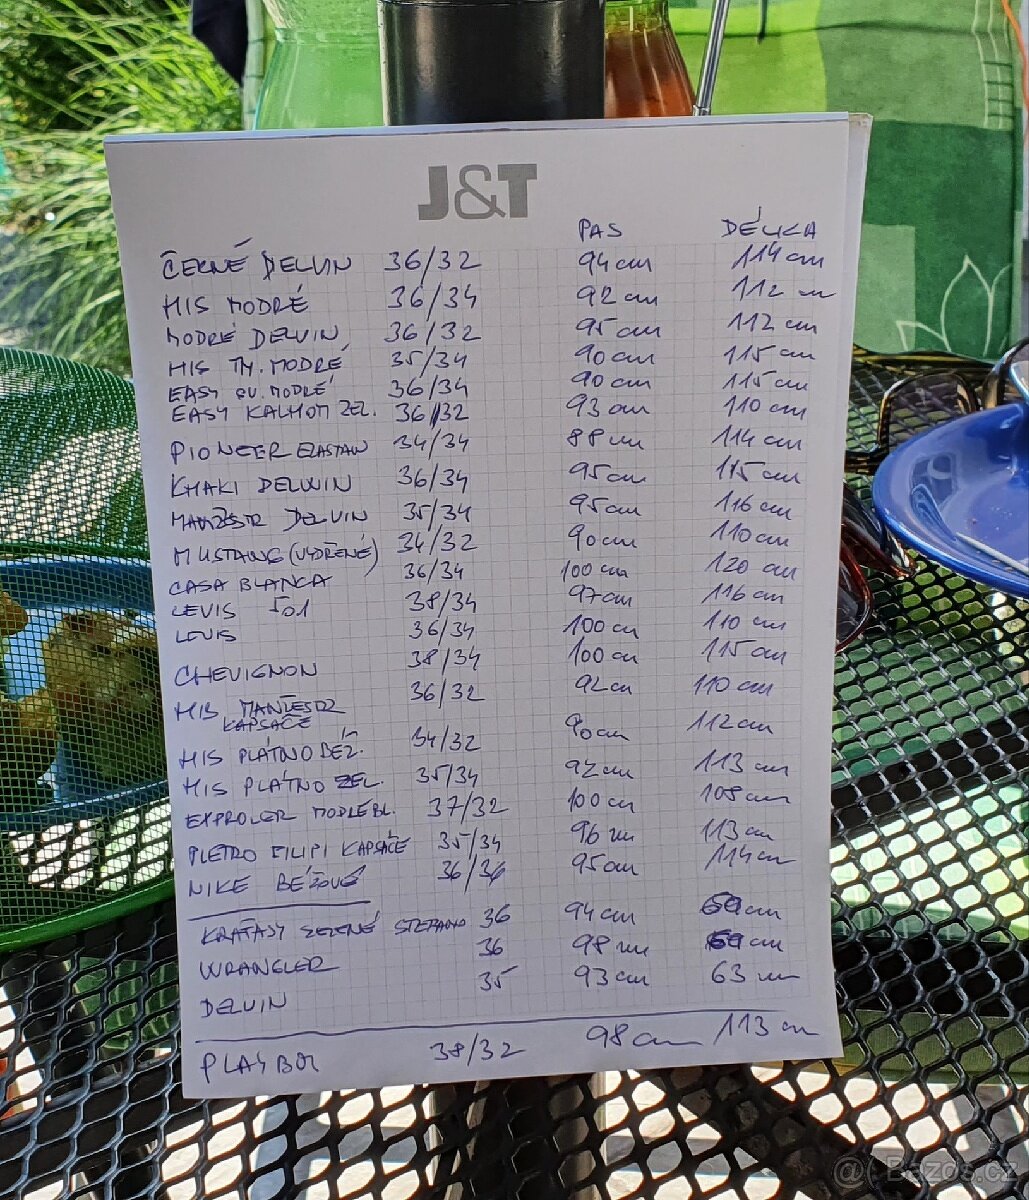 J&T
PAS DÉLKA
ČERNÉ DELVIN 36/32 94cm 114cm
HIS MODRÉ 36/34 92cm 112cm
MODRÉ DELVIN 36/32 95cm 112cm
HIS TM. MODRÉ 35/34 90cm 115cm
EASY SV. MODRÉ 36/34 90cm 115cm
EASY KALHOTY ZEL. 36/32 93cm 110cm
PIONEER ELASTAN 34/34 88cm 114cm
KHAKI DELVIN 36/34 95cm 115cm
MANŽESTR DELVIN 35/34 95cm 116cm
MUSTANG (VYDŘENÉ) 34/32 90cm 110cm
CASA BLANCA 36/34 100cm 120cm
LEVIS 501 38/34 97cm 116cm
LEVIS 36/34 100cm 110cm
CHEVIGNON 38/34 100cm 115cm
HIS MANŽESTR 36/32 92cm 110cm
KAPSÁČE
HIS PLÁTNO BÉŽ. 34/32 90cm 112cm
HIS PLÁTNO ZEL. 35/34 92cm 113cm
EXPROLER MODRÉ BL. 37/32 100cm 108cm
PIETRO FILIPI KAPSÁČE 35/34 96cm 113cm
NIKE BÉŽOVÉ 36/36 95cm 114cm
KRAŤASY ZELENÉ STEFANO 36 94cm cm
WRANGLER 36 98cm cm
DELVIN 35 93cm 63cm
PLAYBOY 38/32 98cm 113cm
Bazos.cz